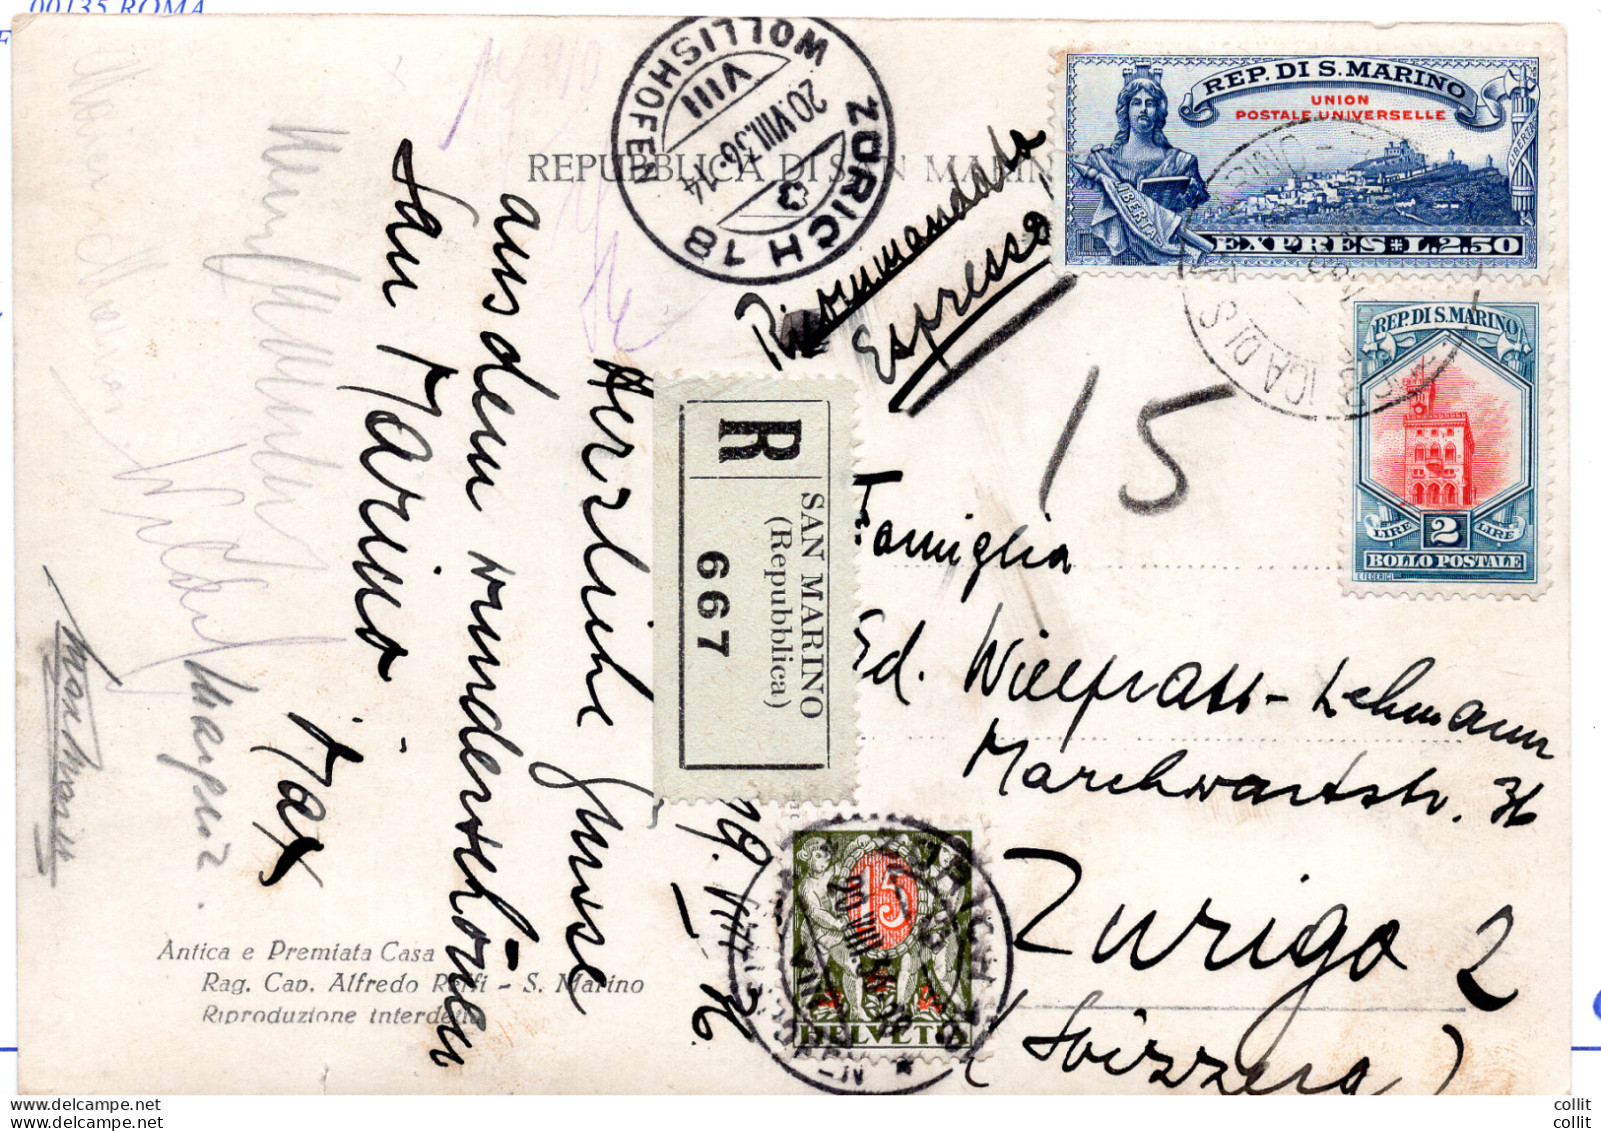 00135 ROMA
REPUBBLICA DI SAN MARINO
ZÜRICH 18
WOLLISHOFEN
VIII
20.VIII.36-14
3
Raccomandata
Espresso
REP. DI S. MARINO
UNION
POSTALE UNIVERSELLE
LIBERTAS
LIBERTAS
EXPRES L.2.50
REP. DI S. MARINO
LIRE 2 LIRE
BOLLO POSTALE
15
R
SAN MARINO
(Repubblica)
667
19. VIII. 36
Herzliche Grüsse
aus dem wunderschönen
San Marino
Max
Famiglia
Ed. Wielfrass-Lehmann
Marchwartstr. 36
Zurigo 2
(Svizzera)
15
HELVETIA
Antica e Premiata Casa
Rag. Cap. Alfredo Reffi - S. Marino
Riproduzione interdetta
collit
collit
https://www.delcampe.net